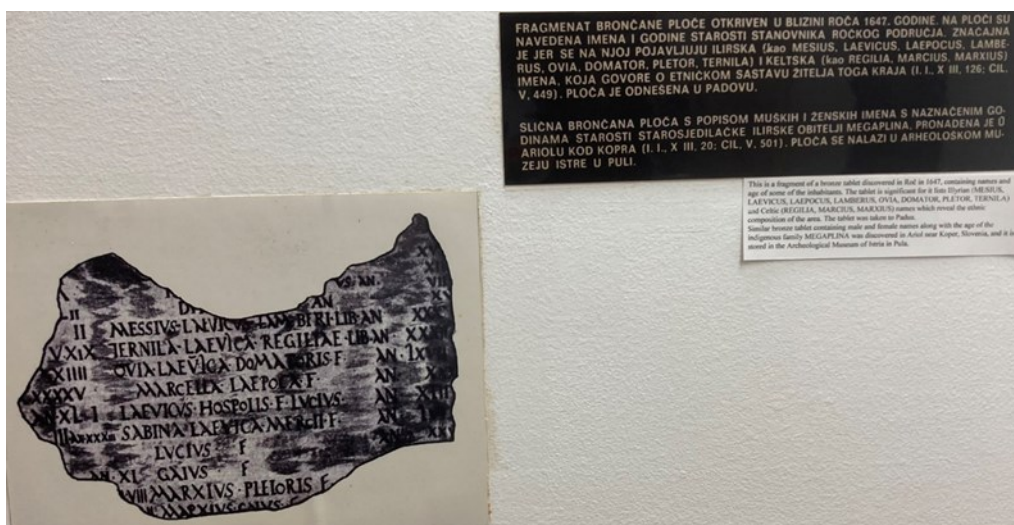 FRAGMENAT BRONČANE PLOČE OTKRIVEN U BLIZINI ROČA 1647. GODINE. NA PLOČI SU
NAVEDENA IMENA I GODINE STAROSTI STANOVNIKA ROČKOG PODRUČJA. ZNAČAJNA
JE JER SE NA NJOJ POJAVLJUJU ILIRSKA (kao MESIUS, LAEVICUS, LAEPOCUS, LAMBE-
RUS, OVIA, DOMATOR, PLETOR, TERNILA) I KELTSKA (kao REGILIA, MARCIUS, MARXIUS)
IMENA, KOJA GOVORE O ETNIČKOM SASTAVU ŽITELJA TOGA KRAJA (I. I., X III, 126; CIL.
V, 449). PLOČA JE ODNEŠENA U PADOVU.
SLIČNA BRONČANA PLOČA S POPISOM MUŠKIH I ŽENSKIH IMENA S NAZNAČENIM GO-
DINAMA STAROSTI STAROSJEDILAČKE ILIRSKE OBITELJI MEGAPLINA, PRONAĐENA JE U
ARIOLU KOD KOPRA (I. I., X III, 20; CIL, V, 501). PLOČA SE NALAZI U ARHEOLOŠKOM MU-
ZEJU ISTRE U PULI.
This is a fragment of a bronze tablet discovered in Roč in 1647, containing names and
age of some of the inhabitants. The tablet is significant for it lists Illyrian (MESIUS,
LAEVICUS, LAEPOCUS, LAMBERUS, OVIA, DOMATOR, PLETOR, TERNILA)
and Celtic (REGILIA, MARCIUS, MARXIUS) names which reveal the ethnic
composition of the area. The tablet was taken to Padua.
Similar bronze tablet containing male and female names along with the age of the
indigenous family MEGAPLINA was discovered in Ariol near Koper, Slovenia, and it is
stored in the Archeological Museum of Istria in Pula.
VS · AN ·
AN
II MESSIVS · LAEVICVS · LAMBIRI · LIB · AN
VXIX TERNILA · LAEVICA · REGILIAE · LIB · AN ·
XIIII OVIA · LAEVICA · DOMATORIS · F AN ·
XXXXV MARCELLA · LAEPOCA · F · AN X
XL · I LAEVICVS · HOSPOLIS · F · LVCIVS · AN
SABINA · LAEVICA · MERCII · F · AN
LVCIVS F
AN · XL GAIVS F
VIII MARXIVS · PLETORIS F
MARXIVS